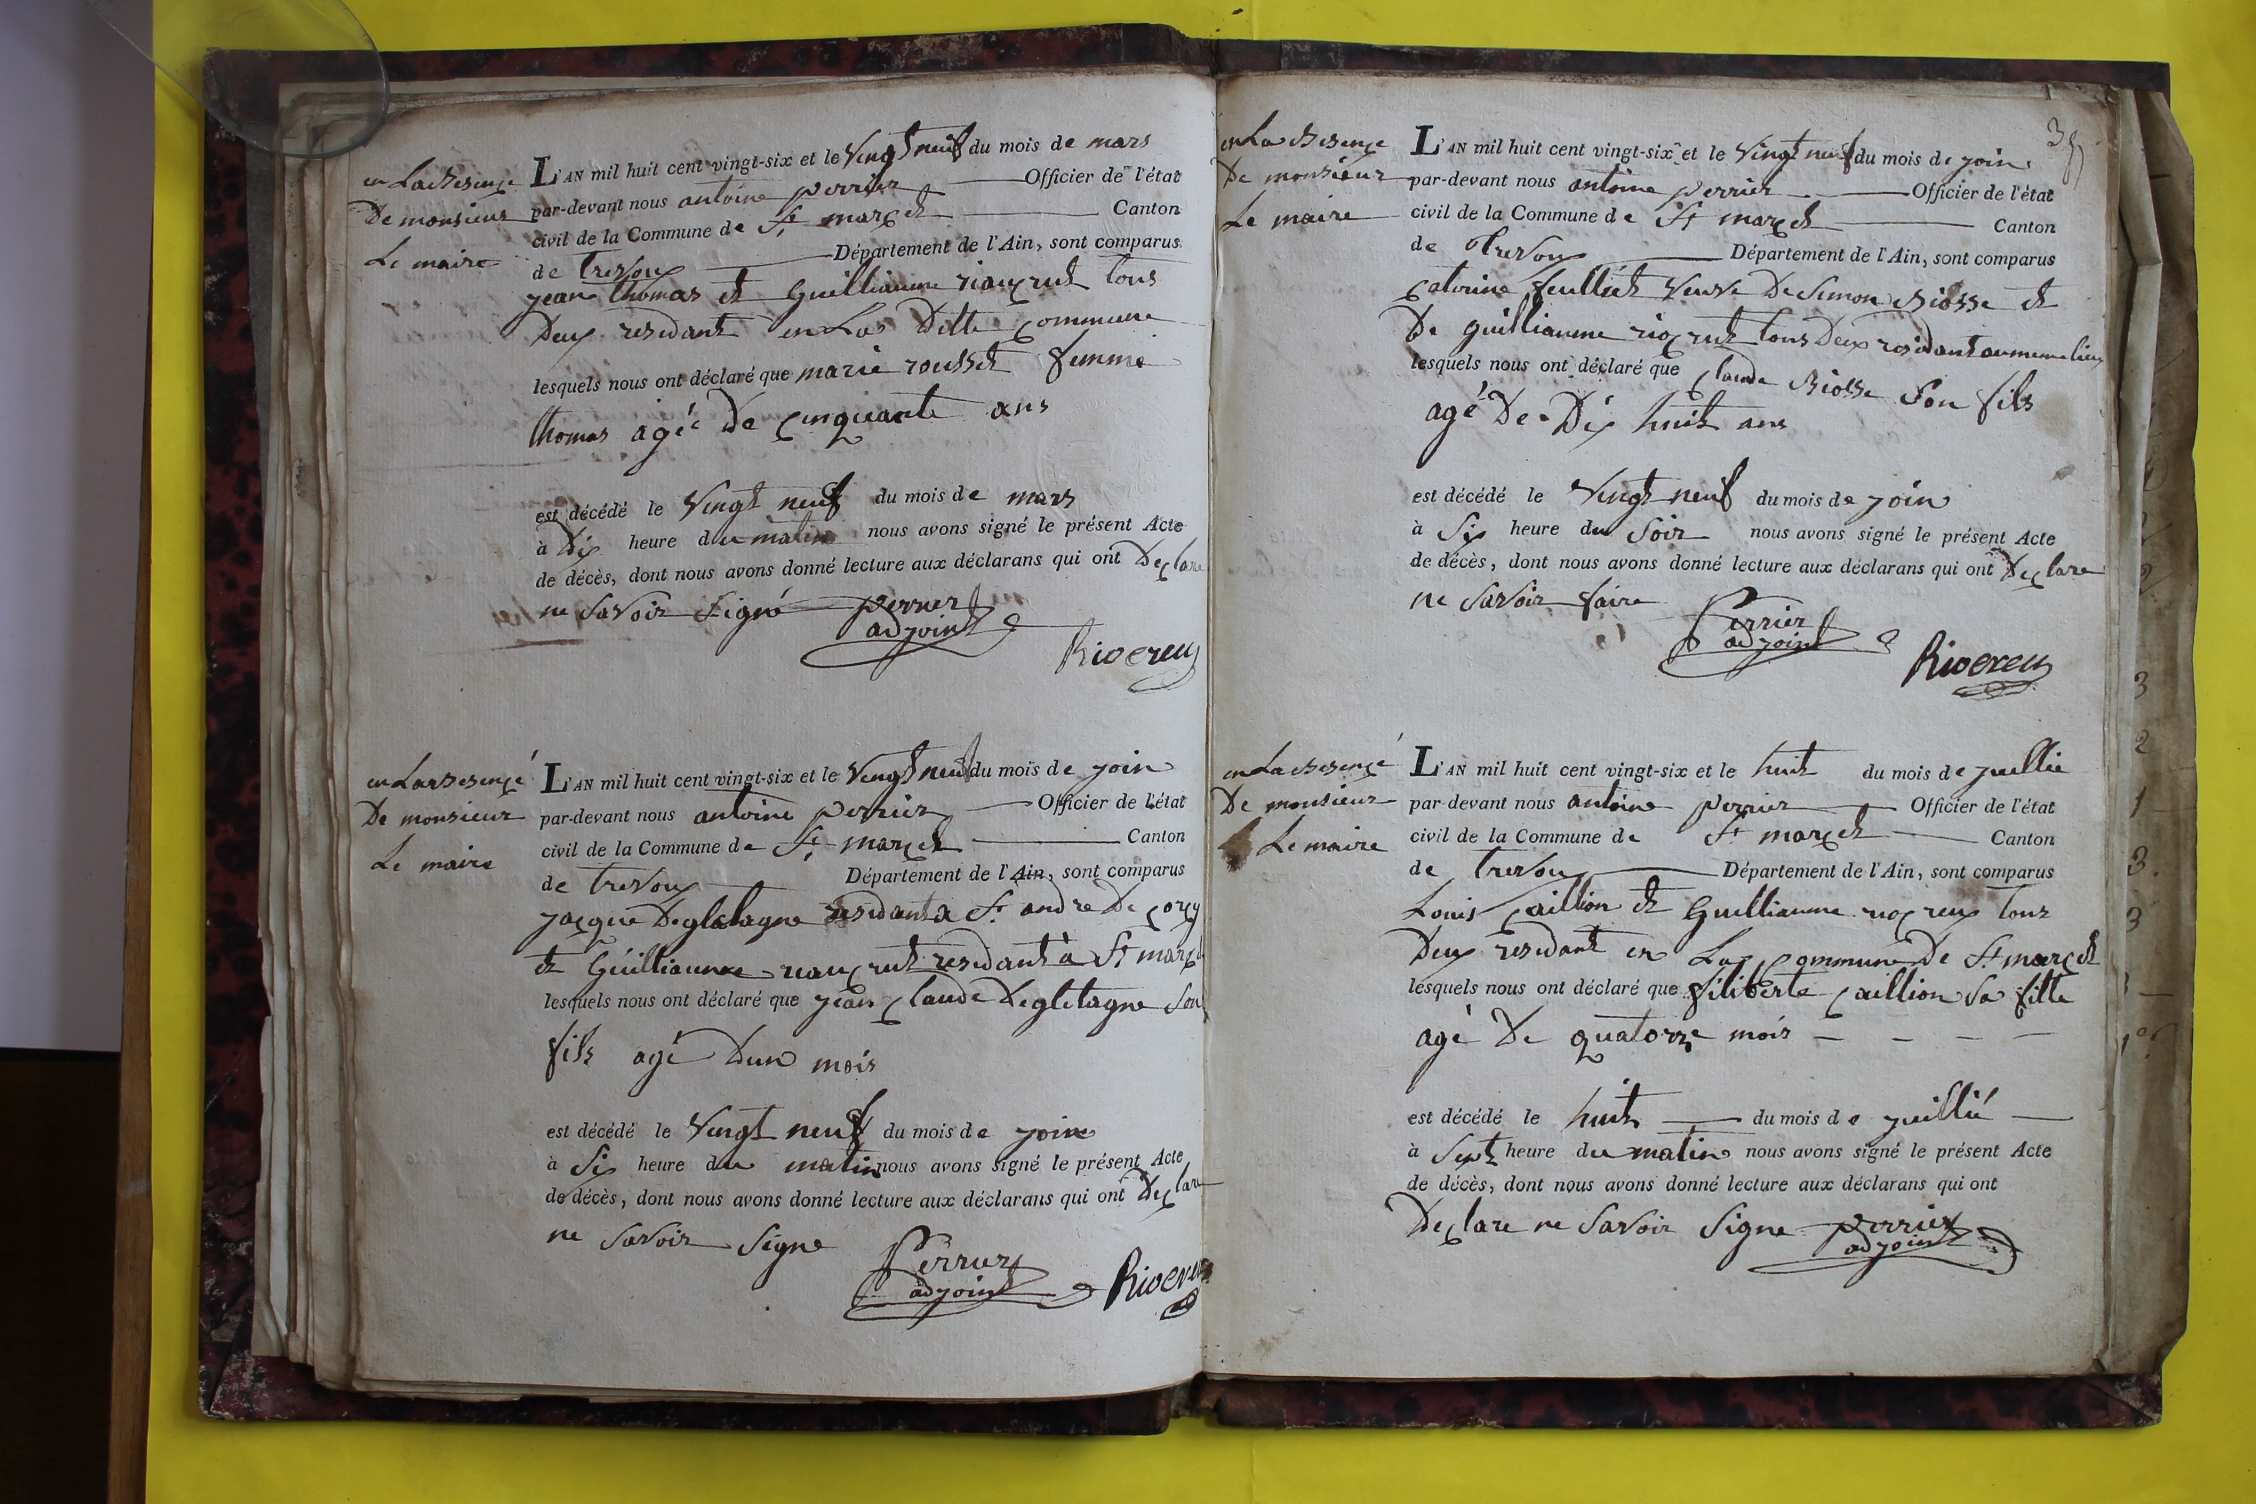 en Labsence
De monsieur
Le maire
L'AN mil huit cent vingt-six et le Vingt neuf du mois de mars
par-devant nous antoine perrier Officier de l'état
civil de la Commune de St marcel Canton
de trevoux Département de l'Ain, sont comparus
jean thomas et Guilliaume tous
Deux residant en La Ditte commune
lesquels nous ont déclaré que marie rousset femme
thomas agéé De cinquante ans
est décédé le Vingt neuf du mois de mars
à Dix heure du matin nous avons signé le présent Acte
de décès, dont nous avons donné lecture aux déclarans qui ont Declare
ne Savoir Signé perrier
adjoint
Rioereux
en Labsence
De monsieur
Le maire
L'AN mil huit cent vingt-six et le Vingt neuf du mois de join
par-devant nous antoine perrier Officier de l'état
civil de la Commune de St marcel Canton
de trevoux Département de l'Ain, sont comparus
jacque Degletagne residant a St andre De corcy
et Guilliaume residant à St marcel
lesquels nous ont déclaré que jean claude Degletagne Son
fils agé Dun mois
est décédé le Vingt neuf du mois de join
à Six heure du matin nous avons signé le présent Acte
de décès, dont nous avons donné lecture aux déclarans qui ont Declare
ne Savoir Signe
Perrier
adjoint
Rioereux
en Labsence
De monsieur
Le maire
L'AN mil huit cent vingt-six et le Vingt neuf du mois de join
par-devant nous antoine perrier Officier de l'état
civil de la Commune de St marcel Canton
de Trevoux Département de l'Ain, sont comparus
catorine feulliet Veuve De Simon Biosse et
De guilliaume tous Deux residant au meme lieu
lesquels nous ont déclaré que claude Biosse Son fils
agé De Dix huit ans
est décédé le Vingt neuf du mois de join
à Six heure du Soir nous avons signé le présent Acte
de décès, dont nous avons donné lecture aux déclarans qui ont Declare
ne Savoir faire
Perrier
adjoint
Rioereux
en Labsence
De monsieur
Le maire
L'AN mil huit cent vingt-six et le huit du mois de juillie
par devant nous antoine perrier Officier de l'état
civil de la Commune de St marcel Canton
de Trevoux Département de l'Ain, sont comparus
Louis caillion et Guilliaume tous
Deux residant en La commune De St marcel
lesquels nous ont déclaré que filiberte caillion Sa fille
agé De quatorze mois
est décédé le huit du mois de juillié
à Sept heure du matin nous avons signé le présent Acte
de décès, dont nous avons donné lecture aux déclarans qui ont
Declare ne Savoir Signe perrier
adjoint